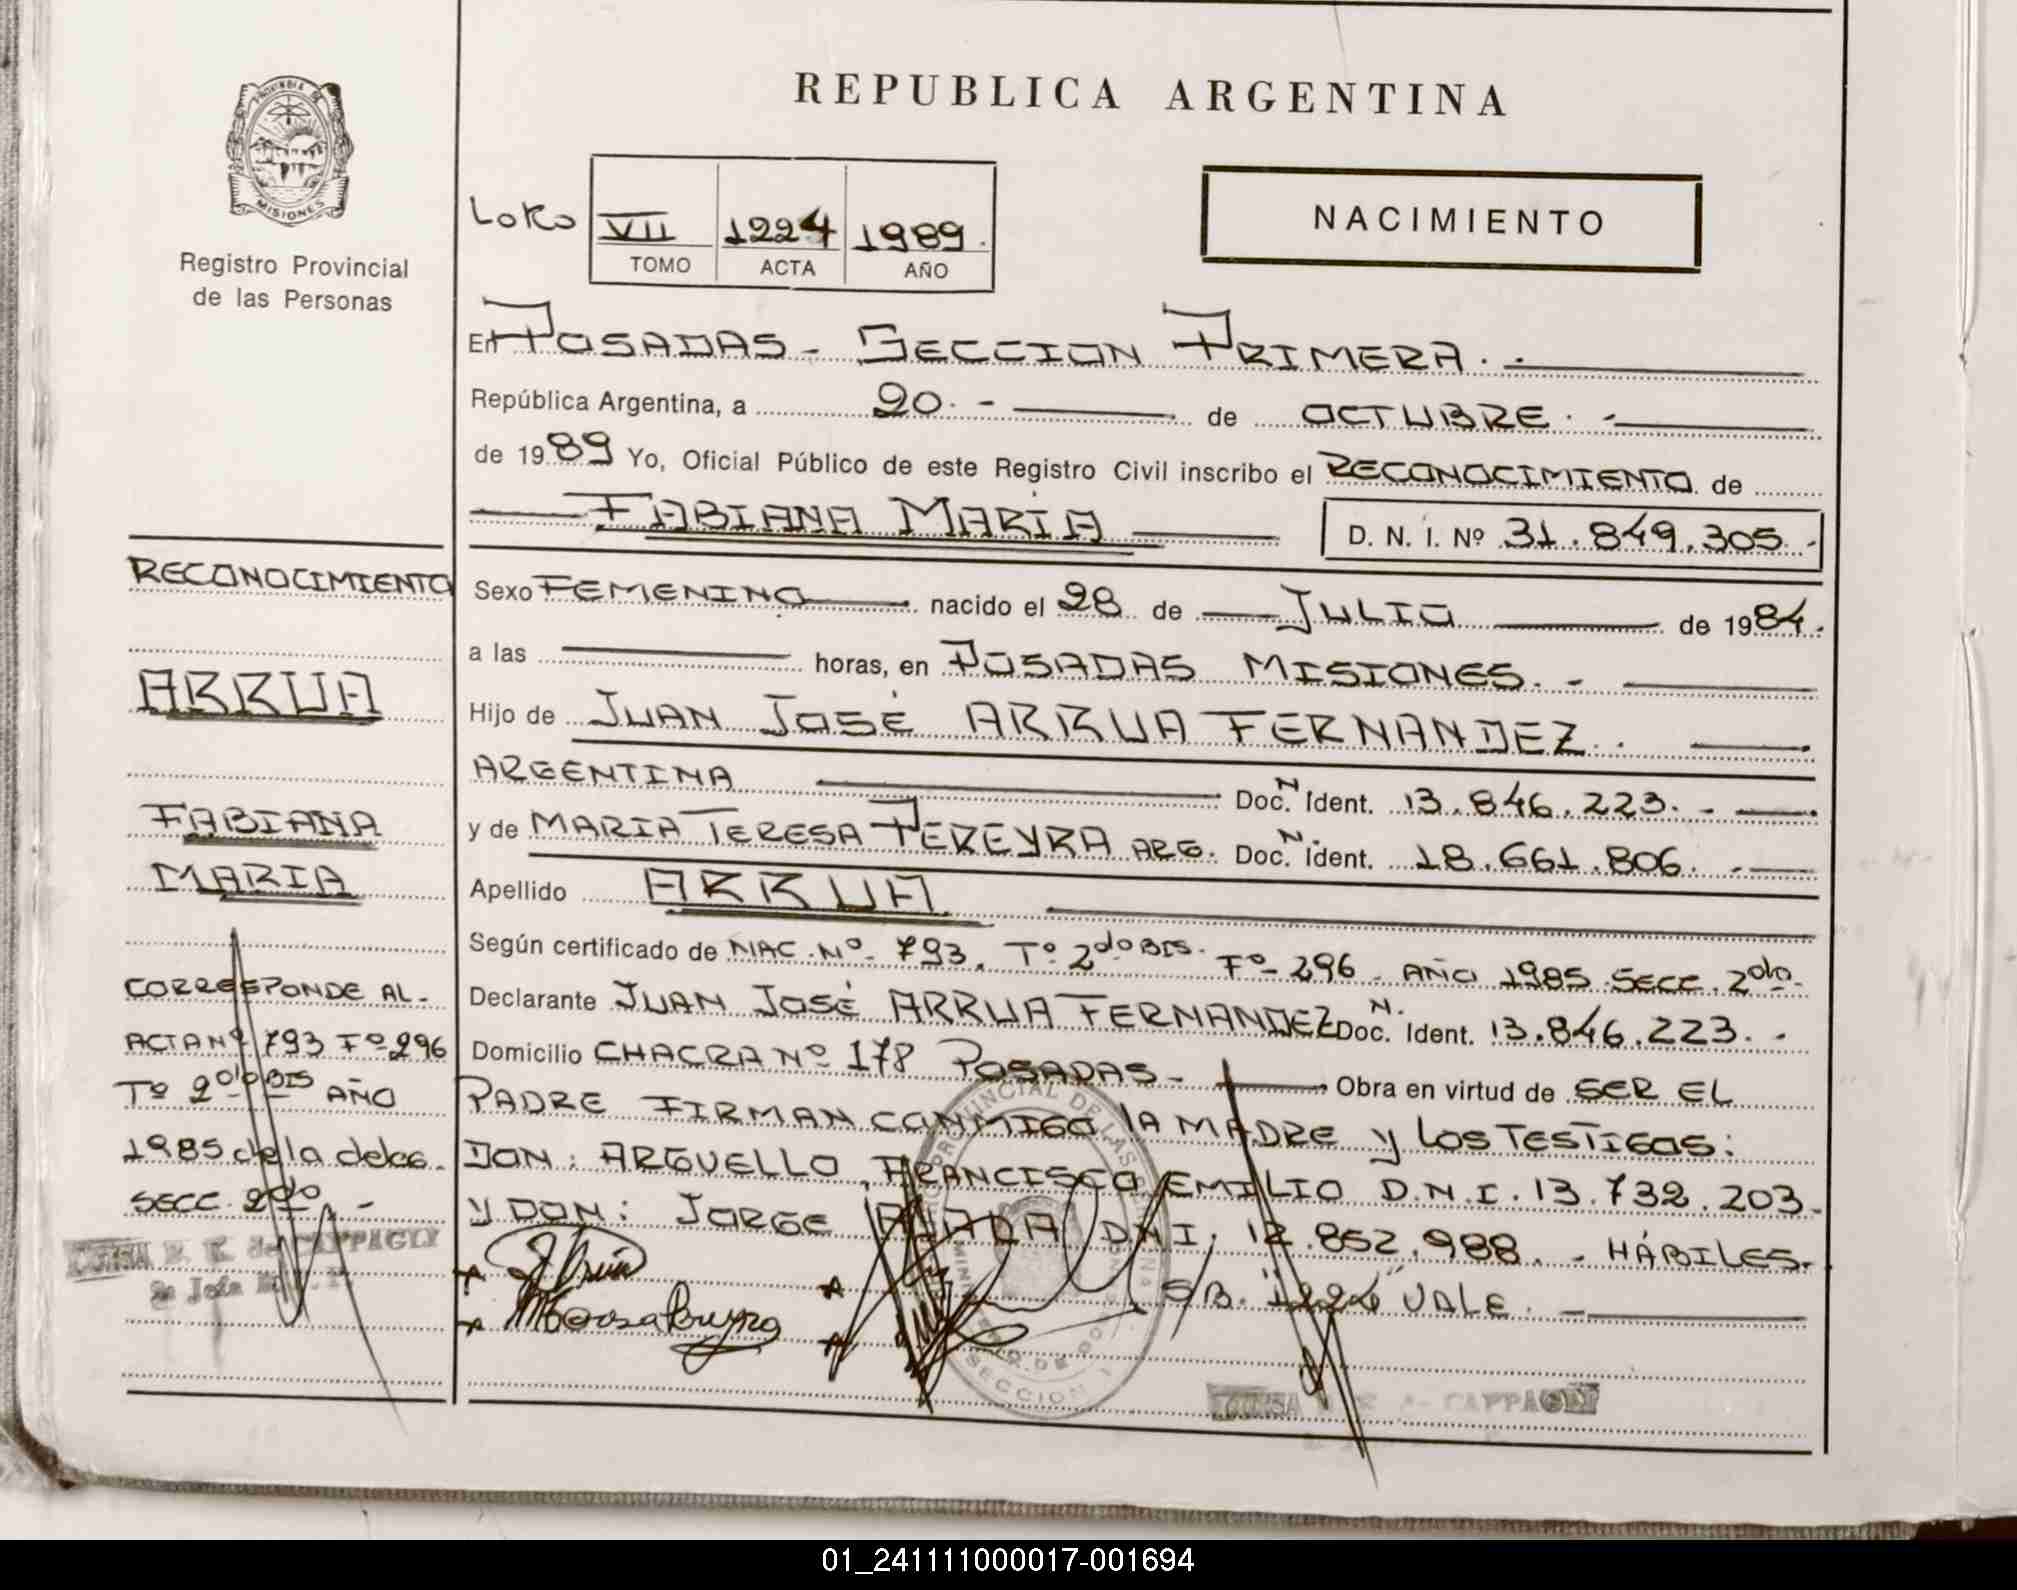 REPUBLICA ARGENTINA
PROVINCIA DE
MISIONES
Registro Provincial
de las Personas
VII 1224 1989.
TOMO ACTA AÑO
NACIMIENTO
En POSADAS - SECCION PRIMERA.
República Argentina, a 20. - de OCTUBRE. -
de 1989 Yo, Oficial Público de este Registro Civil inscribo el RECONOCIMIENTO de
FABIANA MARÍA
D. N. I. Nº 31.849.305.-
RECONOCIMIENTO
ARRUA
FABIANA
MARIA
CORRESPONDE AL-
ACTA Nº 793 Fº 296
Tº 2do BIS AÑO
1985 de la deleg.
SECC. 2da -
Sexo FEMENINO nacido el 28 de JULIO de 1984.
a las horas, en POSADAS MISIONES. -
Hijo de JUAN JOSÉ ARRUA FERNANDEZ.
ARGENTINA Doc. N. Ident. 13.846.223. -
y de MARIA TERESA PEREYRA ARG. Doc. N. Ident. 18.661.806. -
Apellido ARRUA
Según certificado de NAC. Nº 793. Tº 2do BIS. Fº 296 - AÑO 1985 SECC. 2da-
Declarante JUAN JOSÉ ARRUA FERNANDEZ Doc. N. Ident. 13.846.223. -
Domicilio CHACRA Nº 178 POSADAS - Obra en virtud de SER EL
PADRE FIRMAN CONMIGO LA MADRE Y LOS TESTIGOS:
DON: ARGUELLO, FRANCISCO EMILIO D.N.I. 13.732.203.
Y DON: JORGE DNI. 12.852.988. - HÁBILES.
S/B. "1224" VALE. -
de CAPPAGLI
CAPPAGLI
SECCION 1
01_241111000017-001694